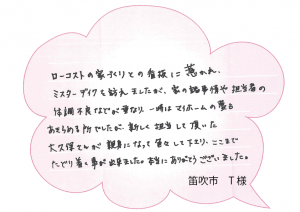 ローコストの家づくりの看板に惹かれ、
ミスターデイクを訪れましたが、家の諸事情や担当者の
体調不良などが重なり、一時はマイホームの夢も
あきらめる所でしたが、新しく担当して頂いた
大久保さんが親身になって色々して下さり、ここまで
たどり着く事が出来ました。本当にありがとうございました。
笛吹市 T様